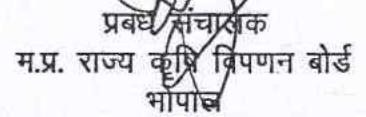 प्रबंध संचालक
म.प्र. राज्य कृषि विपणन बोर्ड
भोपाल